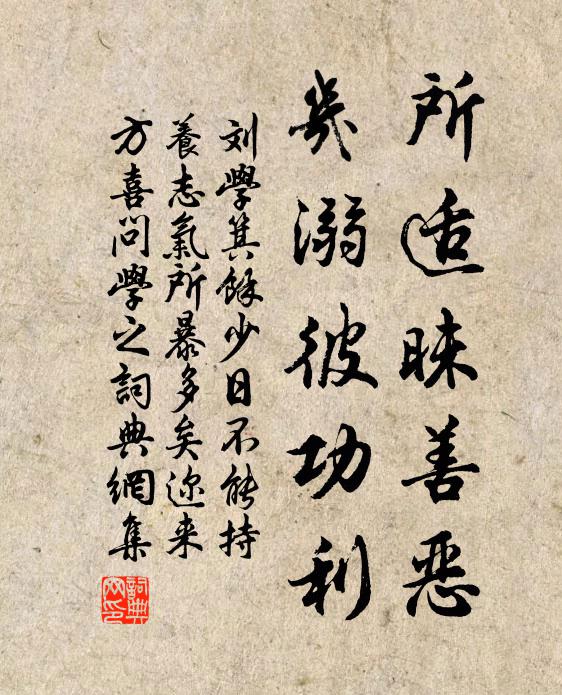 所适昧善恶
几溺彼功利
刘學箕餘少日不能持
養志氣所暴多矣迩来
方喜問學之詞典網集
詞典
网印